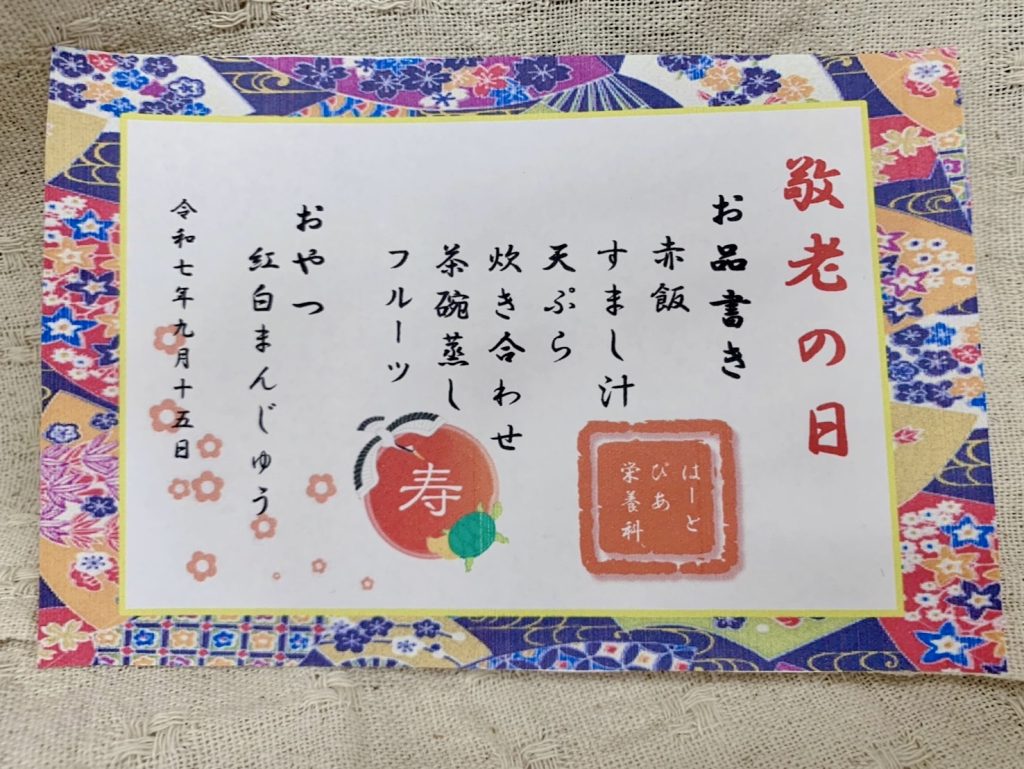 敬老の日
お品書き
赤飯
すまし汁
天ぷら
炊き合わせ
茶碗蒸し
フルーツ
おやつ
紅白まんじゅう
令和七年九月十五日
はーと
ぴあ
栄養科
寿